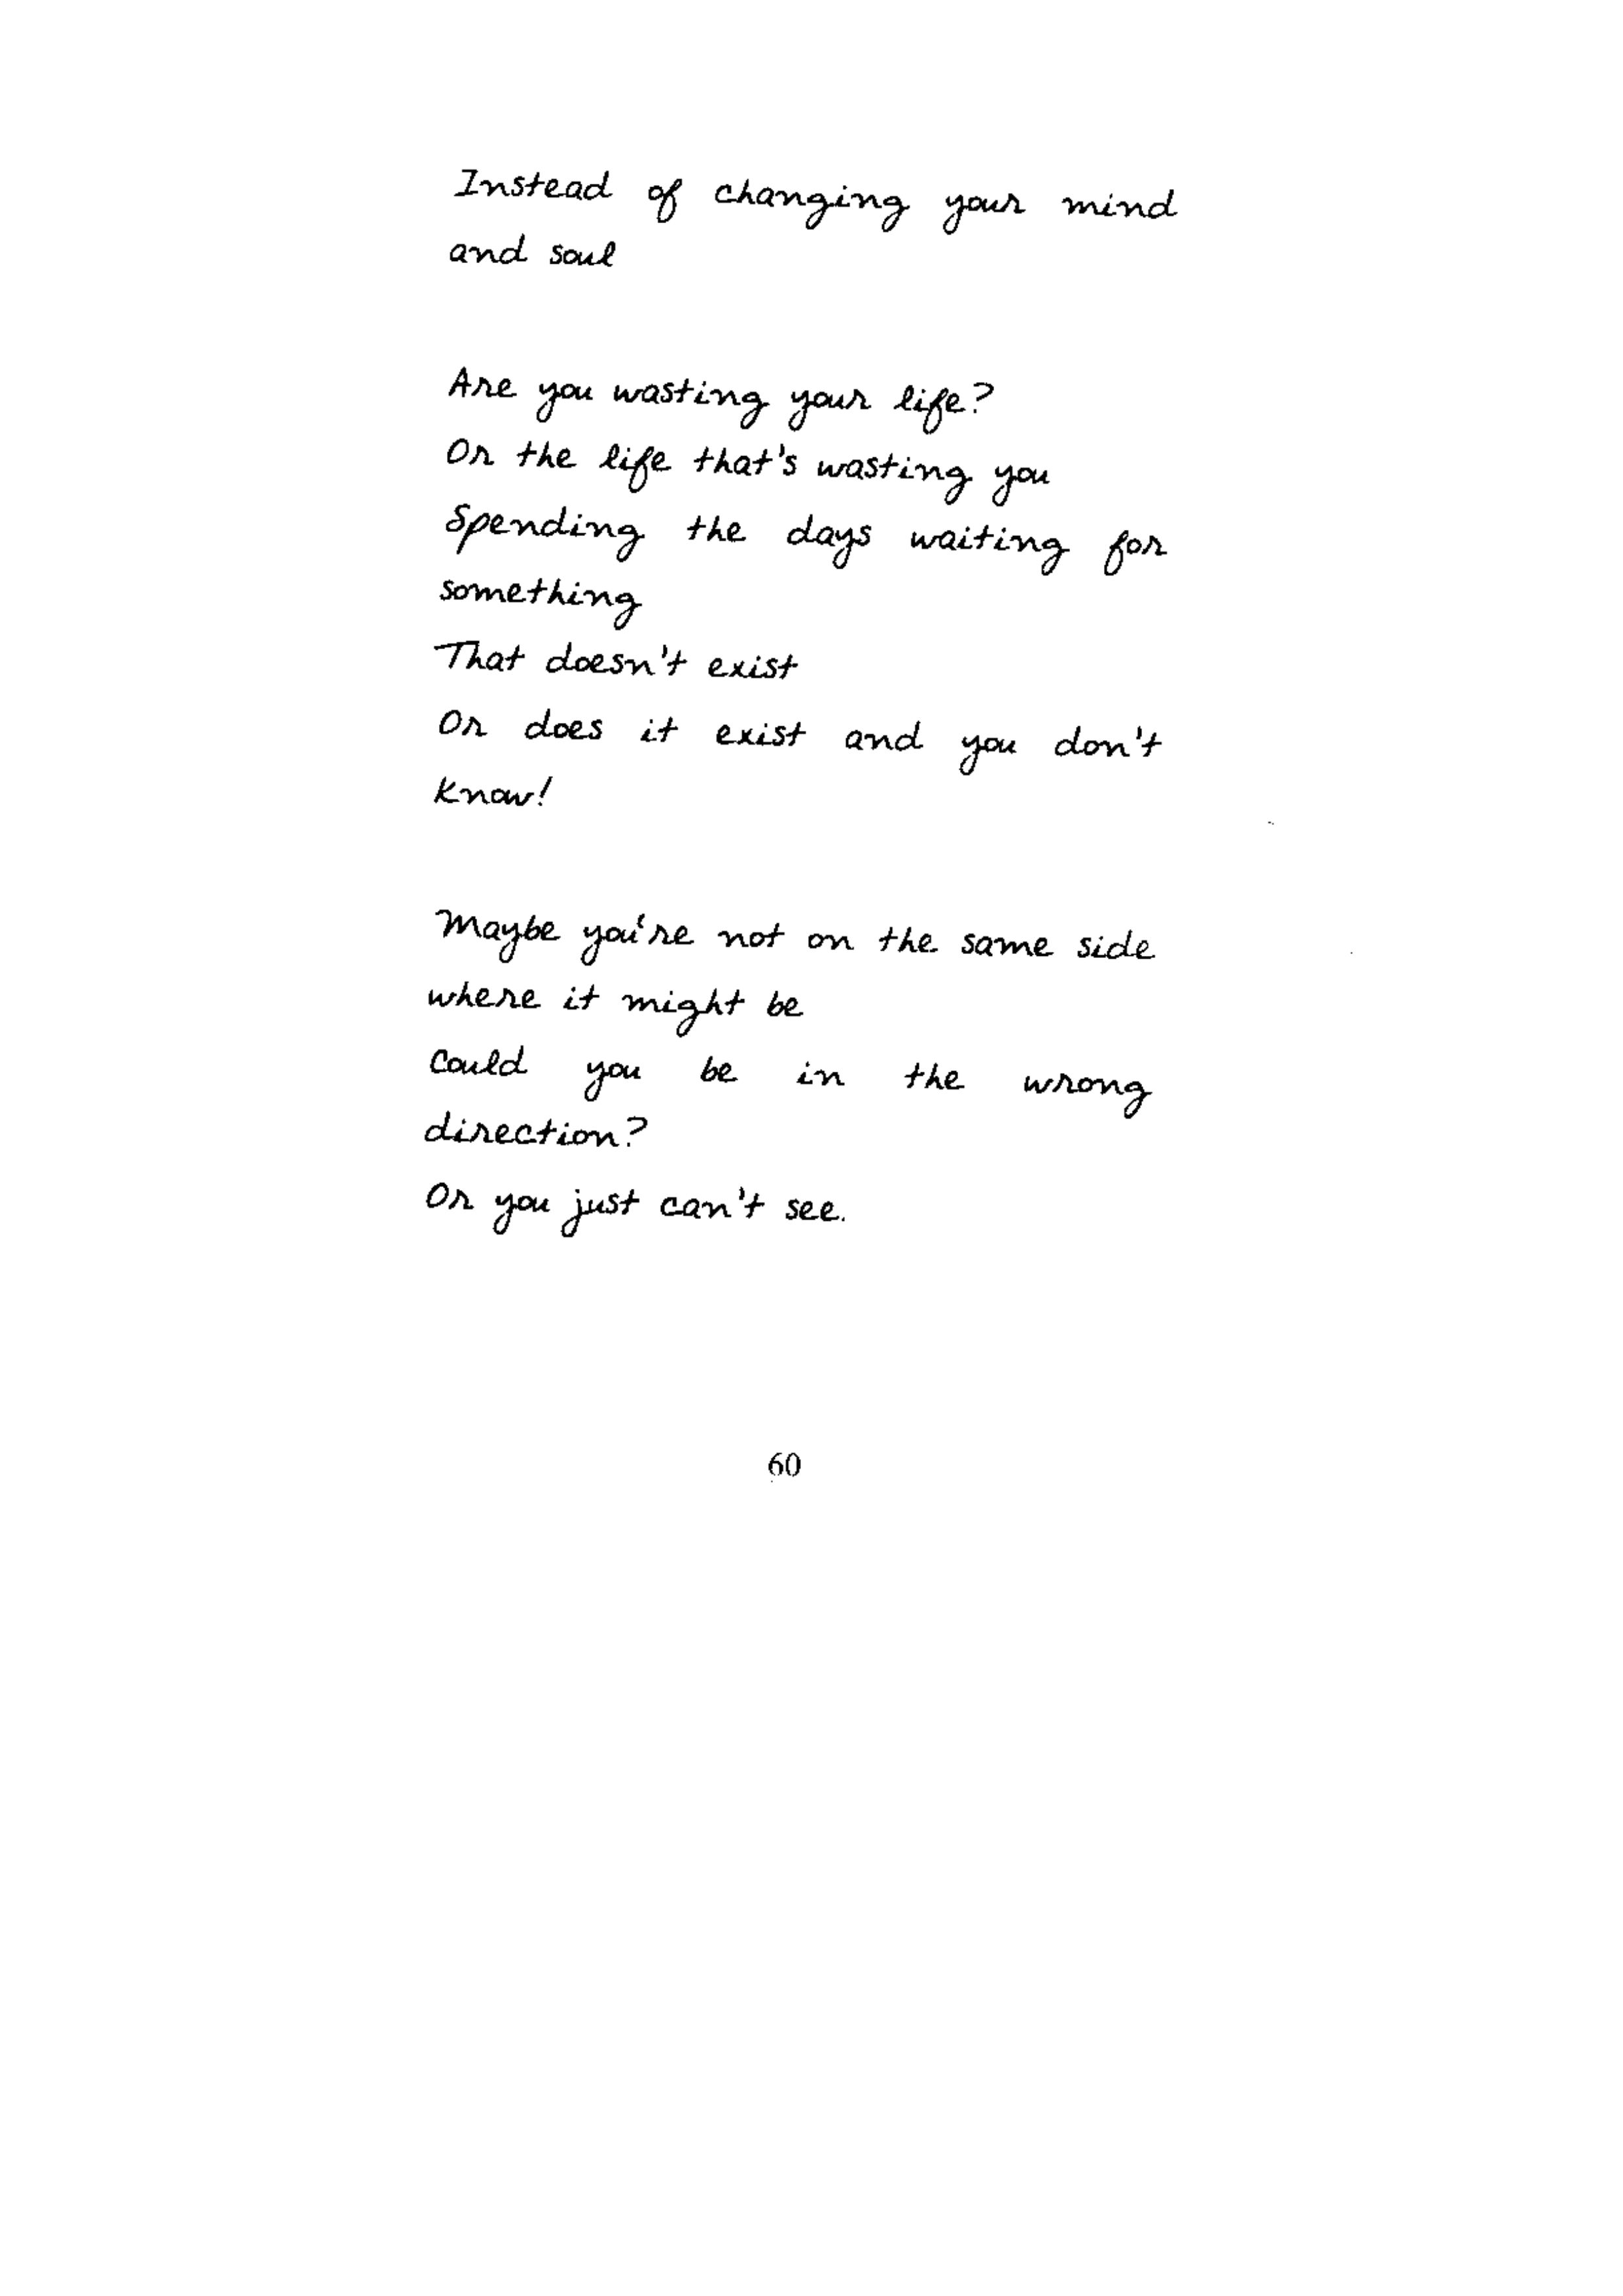 Instead of changing your mind
and soul
Are you wasting your life?
Or the life that's wasting you
Spending the days waiting for
something
That doesn't exist
Or does it exist and you don't
know!
Maybe you're not on the same side
where it might be
Could you be in the wrong
direction?
Or you just can't see.
60